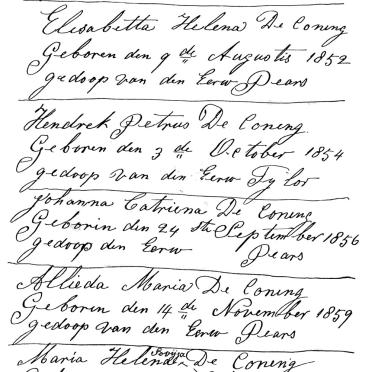 Elisabetta Helena De Coning
Geboren den 9 de Augustis 1852
gedoop van den Eerw Pears
Hendrek Petrus De Coning
Geboren den 3 de October 1854
gedoop van den Eerw Tylor
Johanna Catriena De Coning
Geborin den 24 ste September 1856
gedoop den Eerw Pears
Allieda Maria De Coning
Geboren den 14 de November 1859
gedoop van den Eerw Pears
Maria Helena De Coning